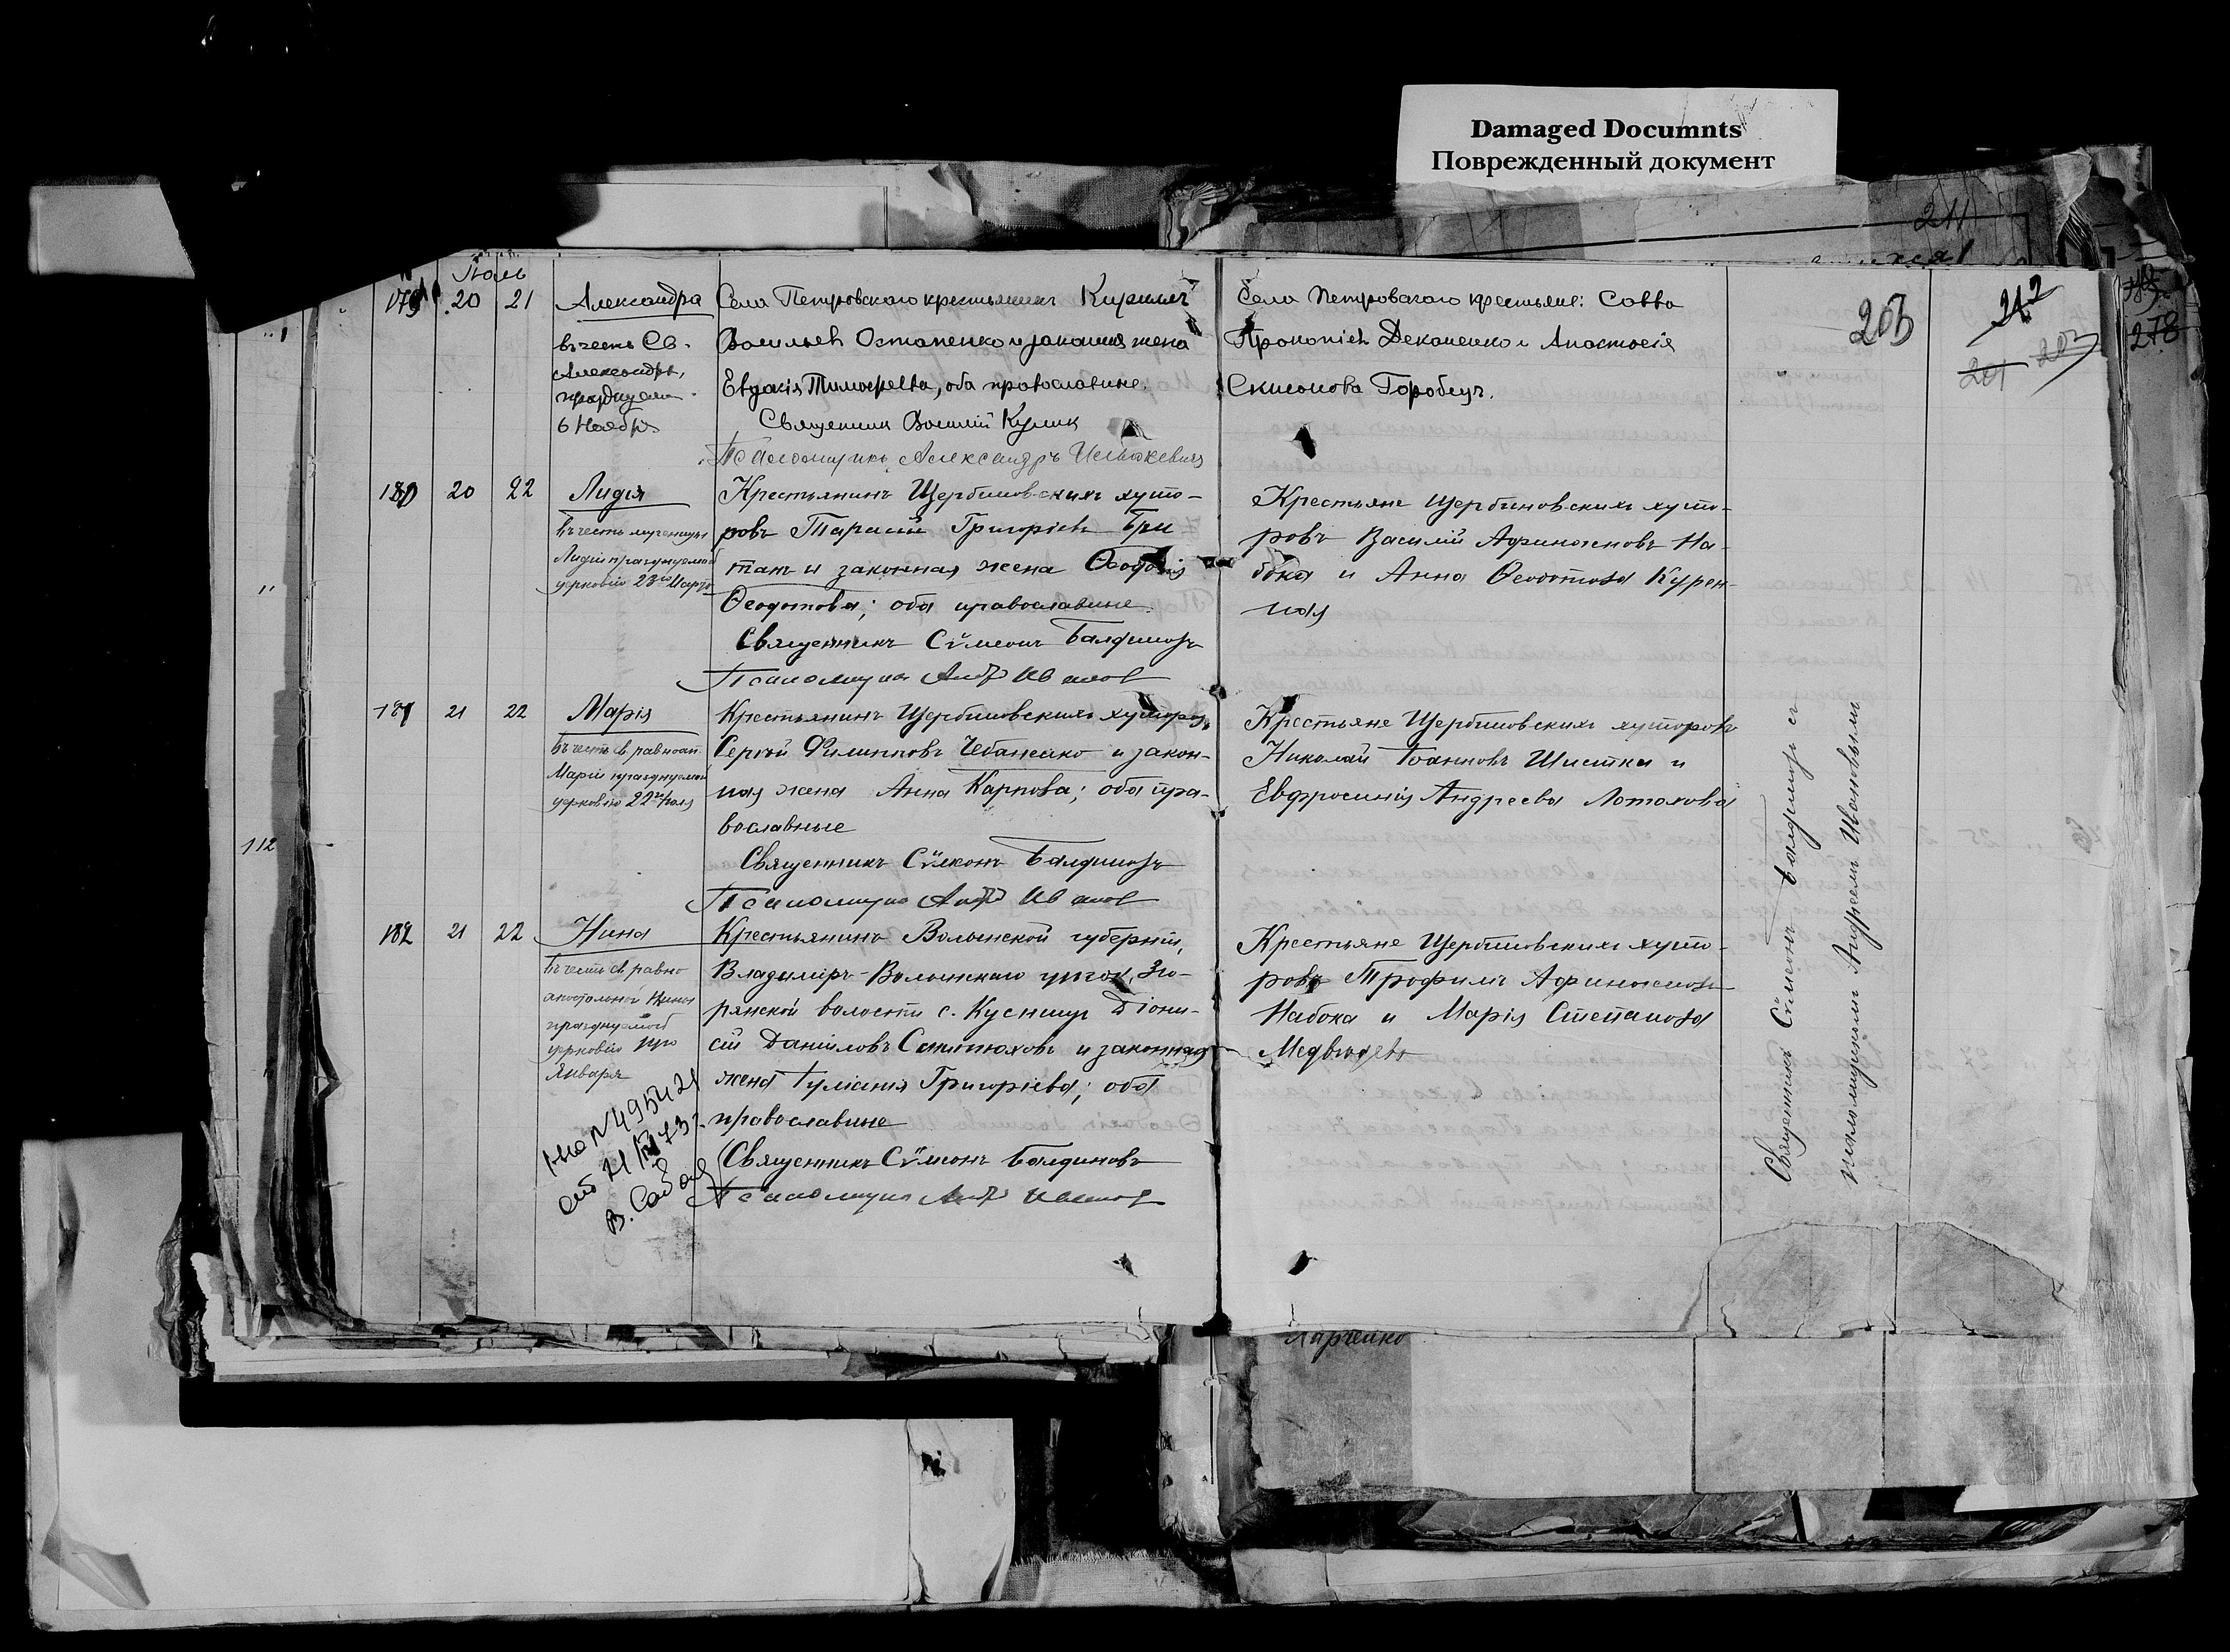 Damaged Documnts
Поврежденный документ
211
Іюль
179 20 21 Александра Села Петровскаго крестьянинъ Кириллъ
въ честь Св.
Александры,
празднуем.
6 Ноября
Васильевъ Остапенко и законная жена
Евдокія Тимофеева, оба православные.
Священникъ Василій Кулик
Псаломщикъ Александръ
Села Петровскаго крестьяне: Савва
Прокопіевъ Деканенко и Анастасія
Горобецъ.
203
212
201 203
278
180 20 22 Лидія
въ честь мученицы
Лидіи празднуемой
церковію 23го Марта
Крестьянинъ Щербиновскихъ хуто-
ровъ Тарасій Григоріевъ Бри
тан и законная жена Ѳеодосія
Ѳеодотова; оба православные.
Священникъ Сѵмеонъ Балдимовъ
Псаломщикъ Андр Иванов
Крестьяне Щербиновскихъ хуто-
ровъ Василій Афиногеновъ На-
бока и Анна Ѳеодотова Курен-
ная
181 21 22 Марія
въ честь св. равноап.
Маріи празднуемой
церковію 22го Іюля
Крестьянинъ Щербиновскихъ хуторов
Сергѣй Филипповъ Чебаненко и закон-
ная жена Анна Карпова; оба пра-
вославные
Священникъ Сѵмеонъ Балдимовъ
Псаломщикъ Андр Иванов
Крестьяне Щербиновскихъ хуторовъ
Николай Іоанновъ Шистка и
Евфросинія Андреева Лотохова
112
182 21 22 Нина
въ честь св. равно
апостольной Нины
празднуемой
церковію
Января
Крестьянинъ Волынской губерніи,
Владиміръ-Волынскаго уѣзда,
рянской волости с. Діони-
сій Даніиловъ и законная
жена Іуліанія Григоріева; оба
православные
Священникъ Сѵмеонъ Балдимовъ
Псаломщикъ Андр Иванов
Крестьяне Щербиновскихъ хуто-
ровъ Трофимъ Афиногеновъ
Набока и Марія Степанова
Медвѣдевъ
N 495421
от 21/IV 73 г.
Священникъ Сѵмеонъ Балдимовъ съ
псаломщикомъ Андреемъ Ивановымъ
Харченко